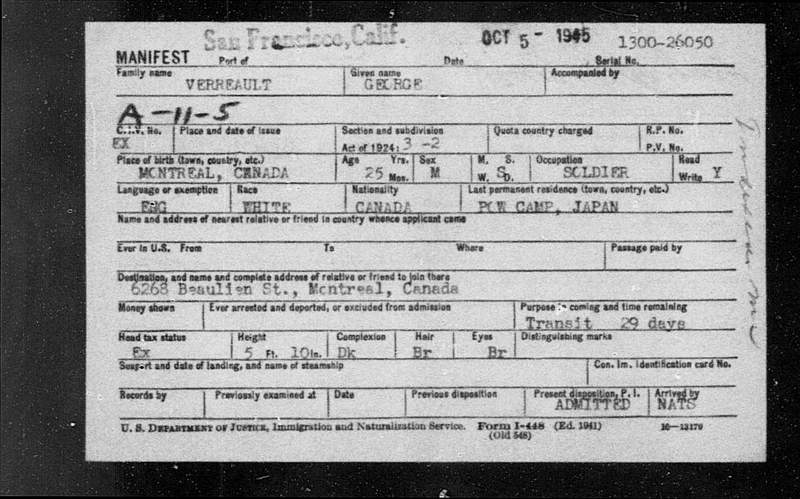 San Francisco, Calif. OCT 5 - 1945 1300-26050
MANIFEST Port of Date Serial No.
Family name Given name Accompanied by
VERREAULT GEORGE
A-11-5
C.I.V. No. Place and date of issue Section and subdivision Quota country charged R.P. No.
EX Act of 1924: 3 -2 P.V. No.
Place of birth (town, country, etc.) Age Yrs. Sex M. S. Occupation Read
MONTREAL, CANADA 25 Mos. M W. S D. SOLDIER Write Y
Language or exemption Race Nationality Last permanent residence (town, country, etc.)
ENG WHITE CANADA POW CAMP, JAPAN
Name and address of nearest relative or friend in country whence applicant came
Ever in U.S. From To Where Passage paid by
Destination, and name and complete address of relative or friend to join there
6268 Beaulien St., Montreal, Canada
Money shown Ever arrested and deported, or excluded from admission Purpose coming and time remaining
Transit 29 days
Head tax status Height Complexion Hair Eyes Distinguishing marks
Ex 5 Ft. 10 In. Dk Br Br
Seaport and date of landing, and name of steamship Con. Im. Identification card No.
Records by Previously examined at Date Previous disposition Present disposition, P. I. Arrived by
ADMITTED NATS
U. S. DEPARTMENT OF JUSTICE, Immigration and Naturalization Service. Form I-448 (Ed. 1941) 16—13179
(Old 548)